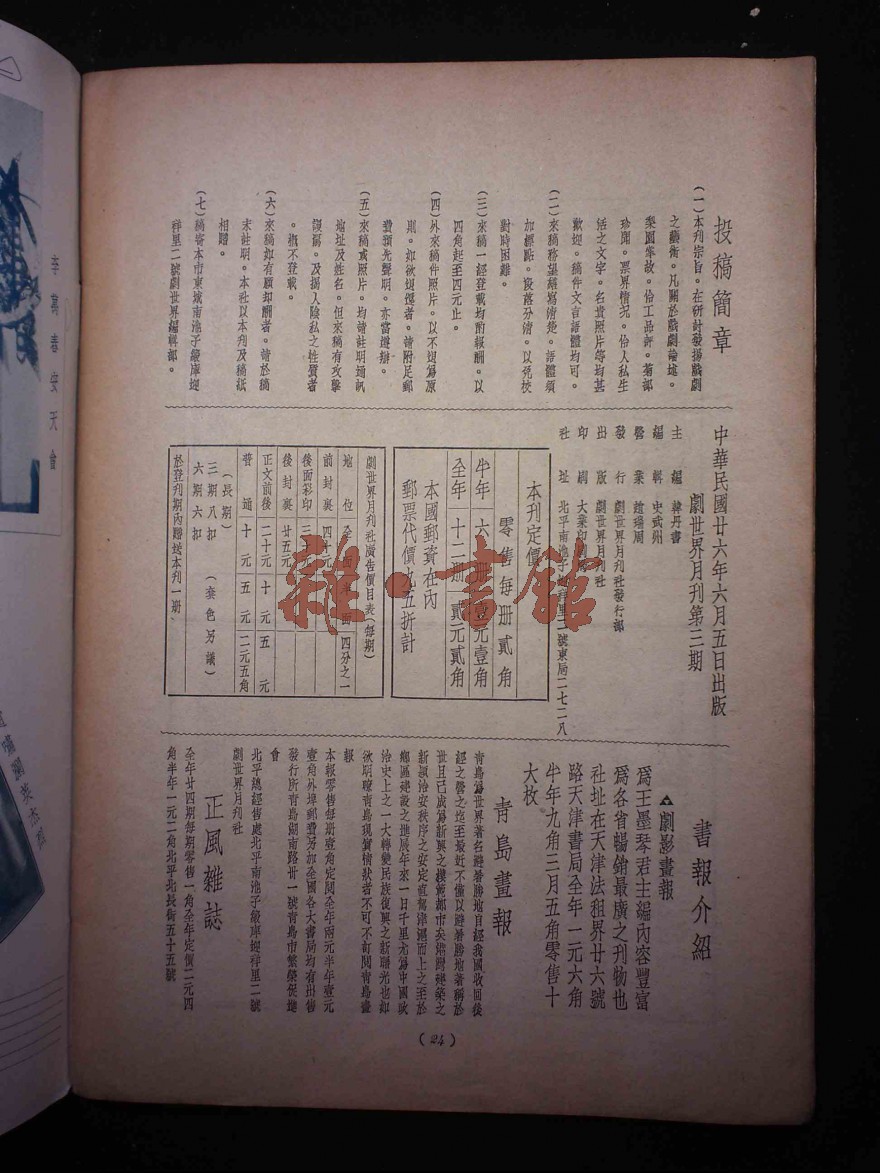 投稿簡章
(一)本刊宗旨。在研討發揚戲劇
之藝術。凡關於戲劇論述。
梨園軼故。伶工品評。菊部
珍聞。票界情况。伶人私生
活之文字。名貴照片等均甚
歡迎。稿件文言語體均可。
(二)來稿務望繕寫清楚。語體須
加標點。段落分清。以免校
對時困難。
(三)來稿一經登載均酌報酬。以
四角起至四元止。
(四)外來稿件照片。以不退爲原
則。如欲退還者。請附足郵
費預先聲明。亦當遵辦。
(五)來稿或照片。均請註明通訊
地址及姓名。但來稿有攻擊
謾罵。及揚人陰私之性質者
。概不登載。
(六)來稿如有願却酬者。請於稿
末註明。本社以本刊及稿紙
相贈。
(七)稿寄本市東城南池子緞庫迎
祥里二號劇世界編輯部。
中華民國廿六年六月五日出版
劇世界月刊第三期
主編 韓丹書
編輯 史武州
營業 趙瑞周
發行 劇世界月刊社發行部
出版 劇世界月刊社
印刷 大業印
社址 北平南池子 祥里二號東局二七二八
本刊定價
零售每册貳角
半年 六册 壹元壹角
全年 十二册 貳元貳角
本國郵資在內
郵票代價九五折計
劇世界月刊社廣告價目表(每期)
地位 全面 半面 四分之一
前封裏 四十元
後面彩印 三
後封裏 廿五元
正文前後 二十元 十元 五元
普通 十元 五元 二元五角
(長期)
三期八扣
六期六扣 (套色另議)
於登刊期內贈送本刊一册
書報介紹
▲劇影畫報
爲王墨琴君主編內容豐富
爲各省暢銷最廣之刊物也
社址在天津法租界廿六號
路天津書局全年一元六角
半年九角三月五角零售十
大枚
青島畫報
青島爲世界著名避暑勝地自經我國收回後
經之營之迄至最近不僅以避暑勝地著稱於
世且已成爲新興之模範都市矣舉附建築之
新穎治安秩序之安定直駕津滬而上之至於
鄉區建設之進展年來一日千里尤爲中國政
治史上之一大轉變民族復興之新曙光也如
欲明瞭青島現實情狀者不可不訂閱青島畫
報
本報零售每册壹角定閱全年兩元半年壹元
壹角外埠郵費另加全國各大書局均有出售
發行所青島湖南路卅一號青島市繁榮促進
會
北平總經售處北平南池子緞庫迎祥里二號
劇世界月刊社
正風雜誌
全年廿四期每期零售一角全年定價二元四
角半年一元二角北平北長街五十五號
(24)
李萬春安天會
雜·書舘